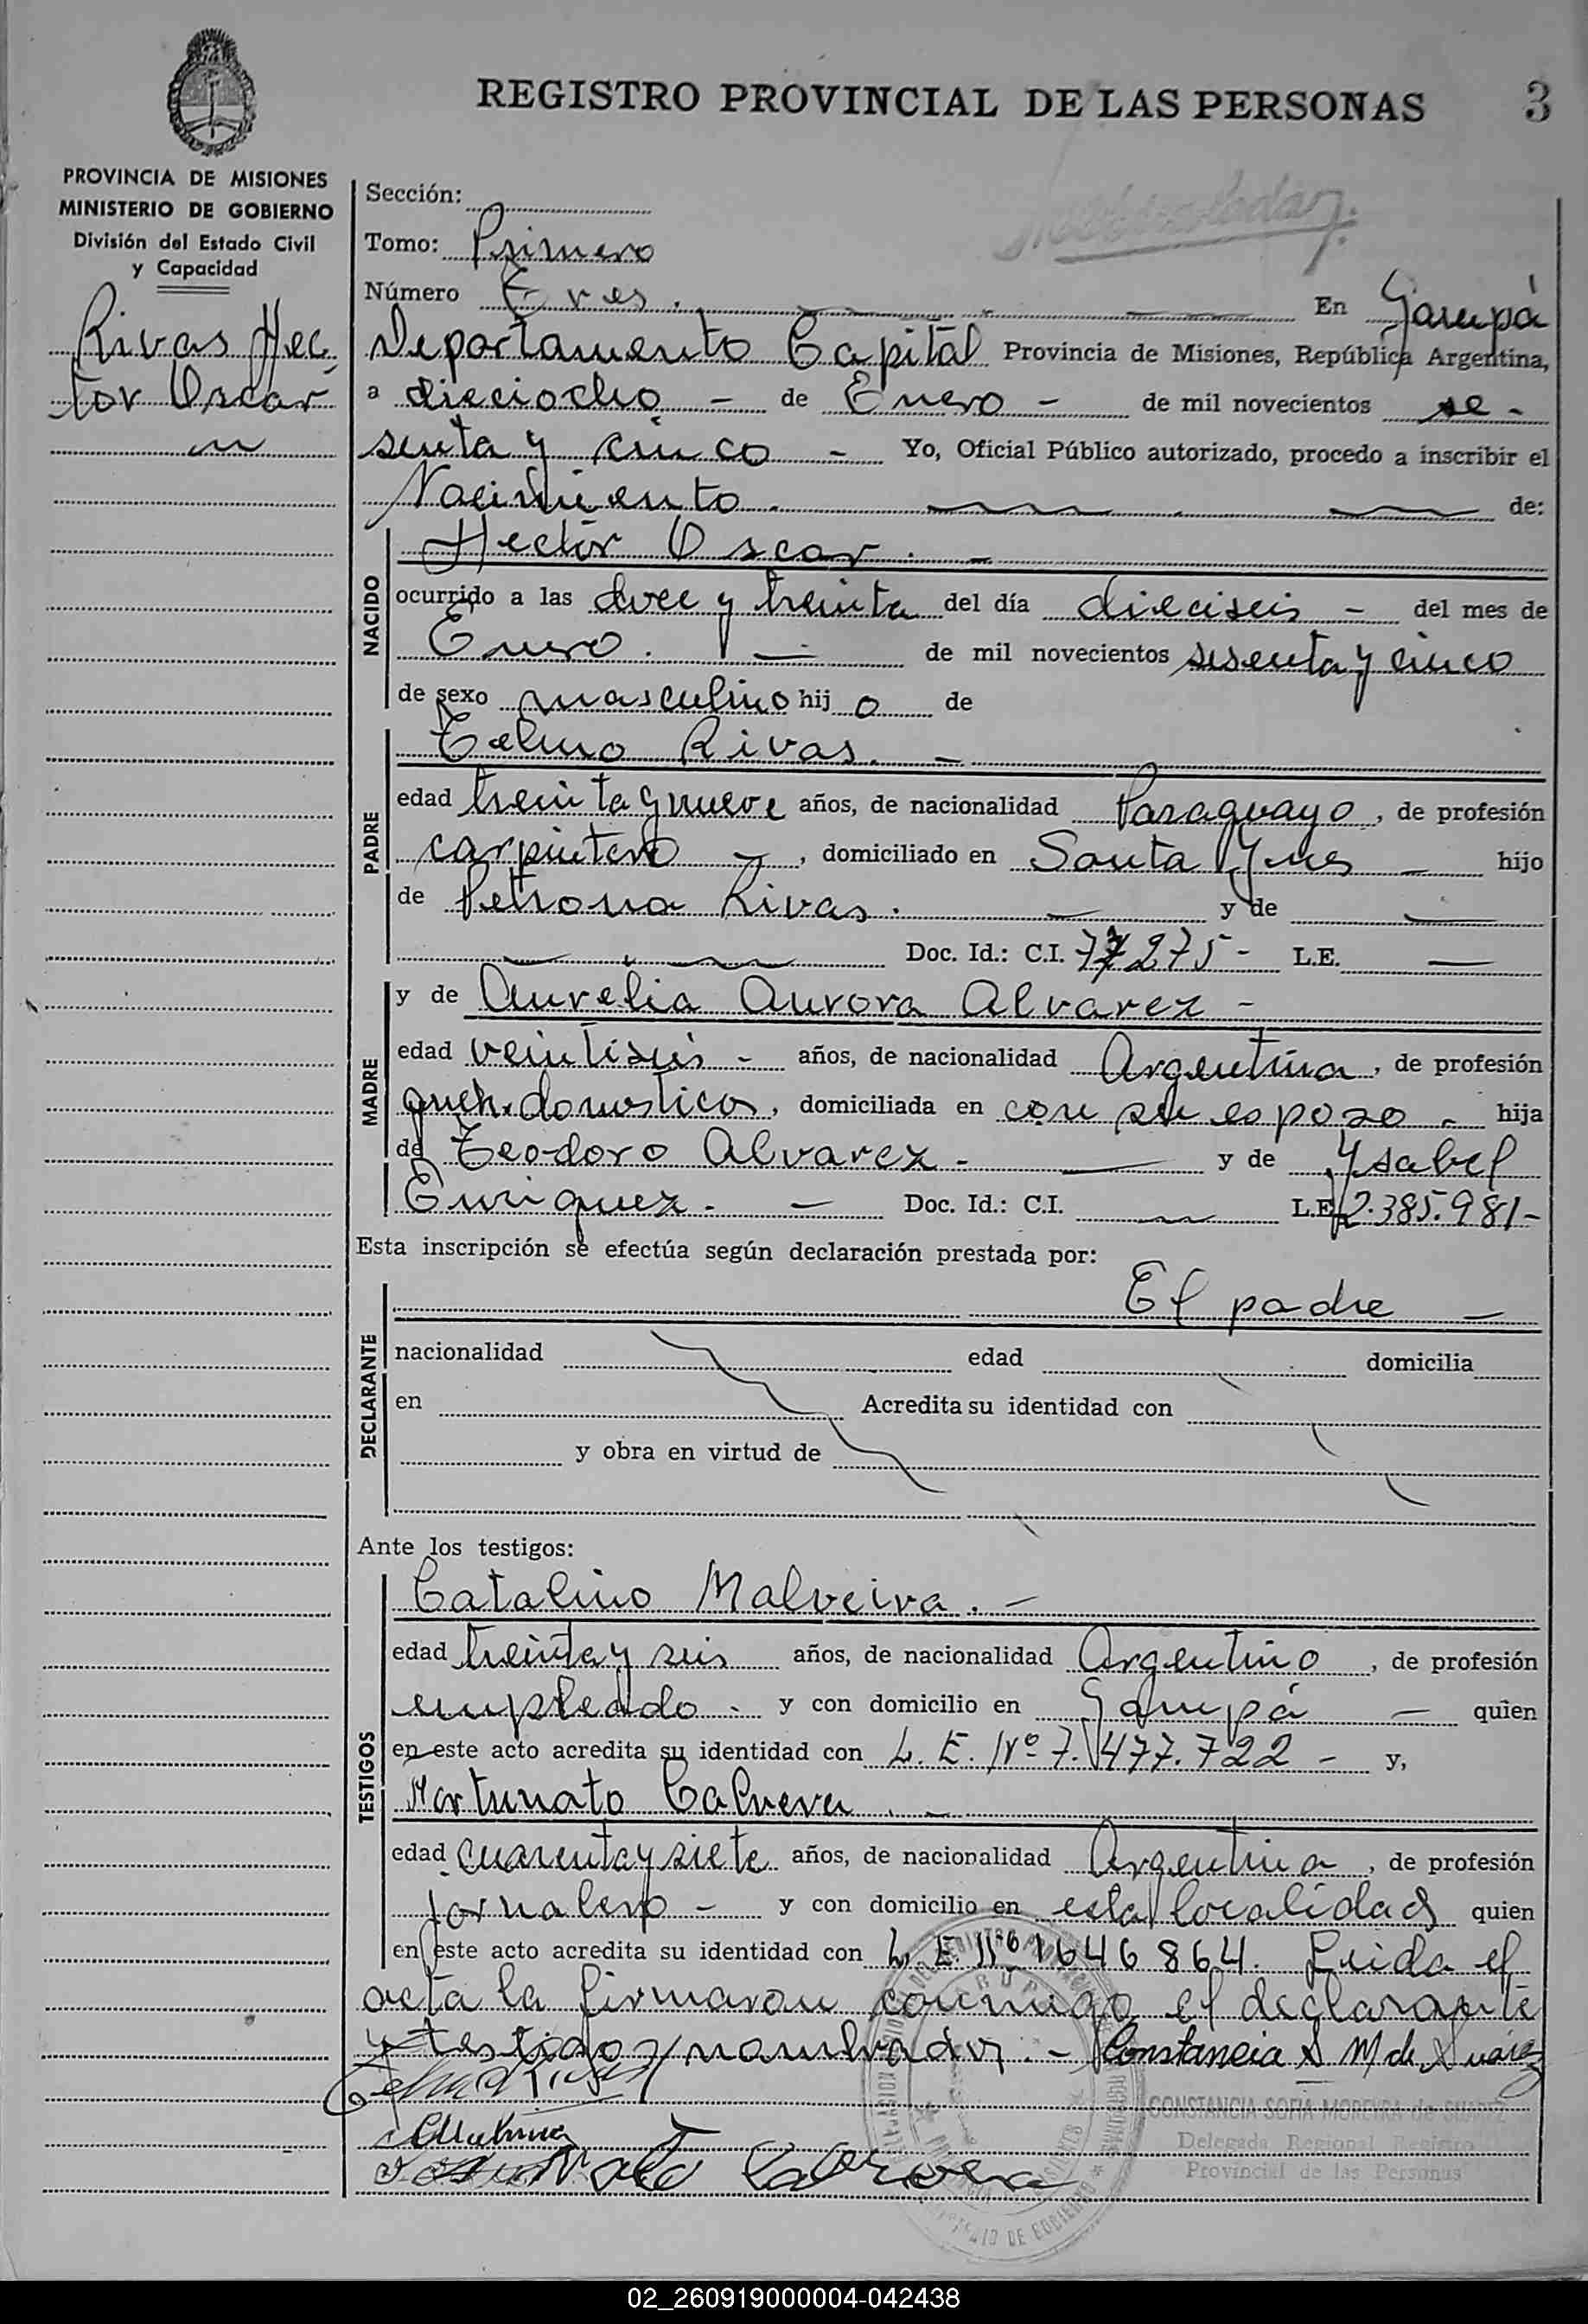 REGISTRO PROVINCIAL DE LAS PERSONAS 3
PROVINCIA DE MISIONES
MINISTERIO DE GOBIERNO
División del Estado Civil
y Capacidad
Rivas Hec
tor Oscar
Sección:
Tomo: Primero
Número Tres. En Garupá
Departamento Capital Provincia de Misiones, República Argentina,
a dieciocho - de Enero - de mil novecientos se-
senta y cinco - Yo, Oficial Público autorizado, procedo a inscribir el
Nacimiento. de:
NACIDO
Hector Oscar. -
ocurrido a las doce y treinta del día dieciseis - del mes de
Enero. - de mil novecientos sesenta y cinco
de sexo masculino hijo de
PADRE
Telmo Rivas. -
edad treinta y nueve años, de nacionalidad Paraguayo, de profesión
carpintero -, domiciliado en Santa Ynes - hijo
de Petrona Rivas. - y de -
Doc. Id.: C.I. 275 - L.E. -
MADRE
y de Aurelia Aurora Alvarez -
edad veintiseis - años, de nacionalidad Argentina, de profesión
queh. domesticos, domiciliada en con su esposo - hija
de Teodoro Alvarez - y de Ysabel
Enriquez. - Doc. Id.: C.I. L.E. 2.385.981-
Esta inscripción se efectúa según declaración prestada por:
DECLARANTE
El padre -
nacionalidad edad domicilia
en Acredita su identidad con
y obra en virtud de
Ante los testigos:
TESTIGOS
Catalino Malveira. -
edad treinta y seis años, de nacionalidad Argentino, de profesión
empleado - y con domicilio en Garupá - quien
en este acto acredita su identidad con L. E. Nº 7.477.722 - y,
Fortunato Cabrera. -
edad cuarenta y siete años, de nacionalidad Argentina, de profesión
jornalero - y con domicilio en esta localidad quien
en este acto acredita su identidad con L. E. Nº 1646864. Leida el
acta la firmaron conmigo el declarante
y testigos nombrados. - Constancia S M de Suárez
CONSTANCIA SOFIA MOREYRA de SUAREZ
Delegada Regional Registro
Provincial de las Personas
Telmo Rivas
Cabrera
02_260919000004-042438